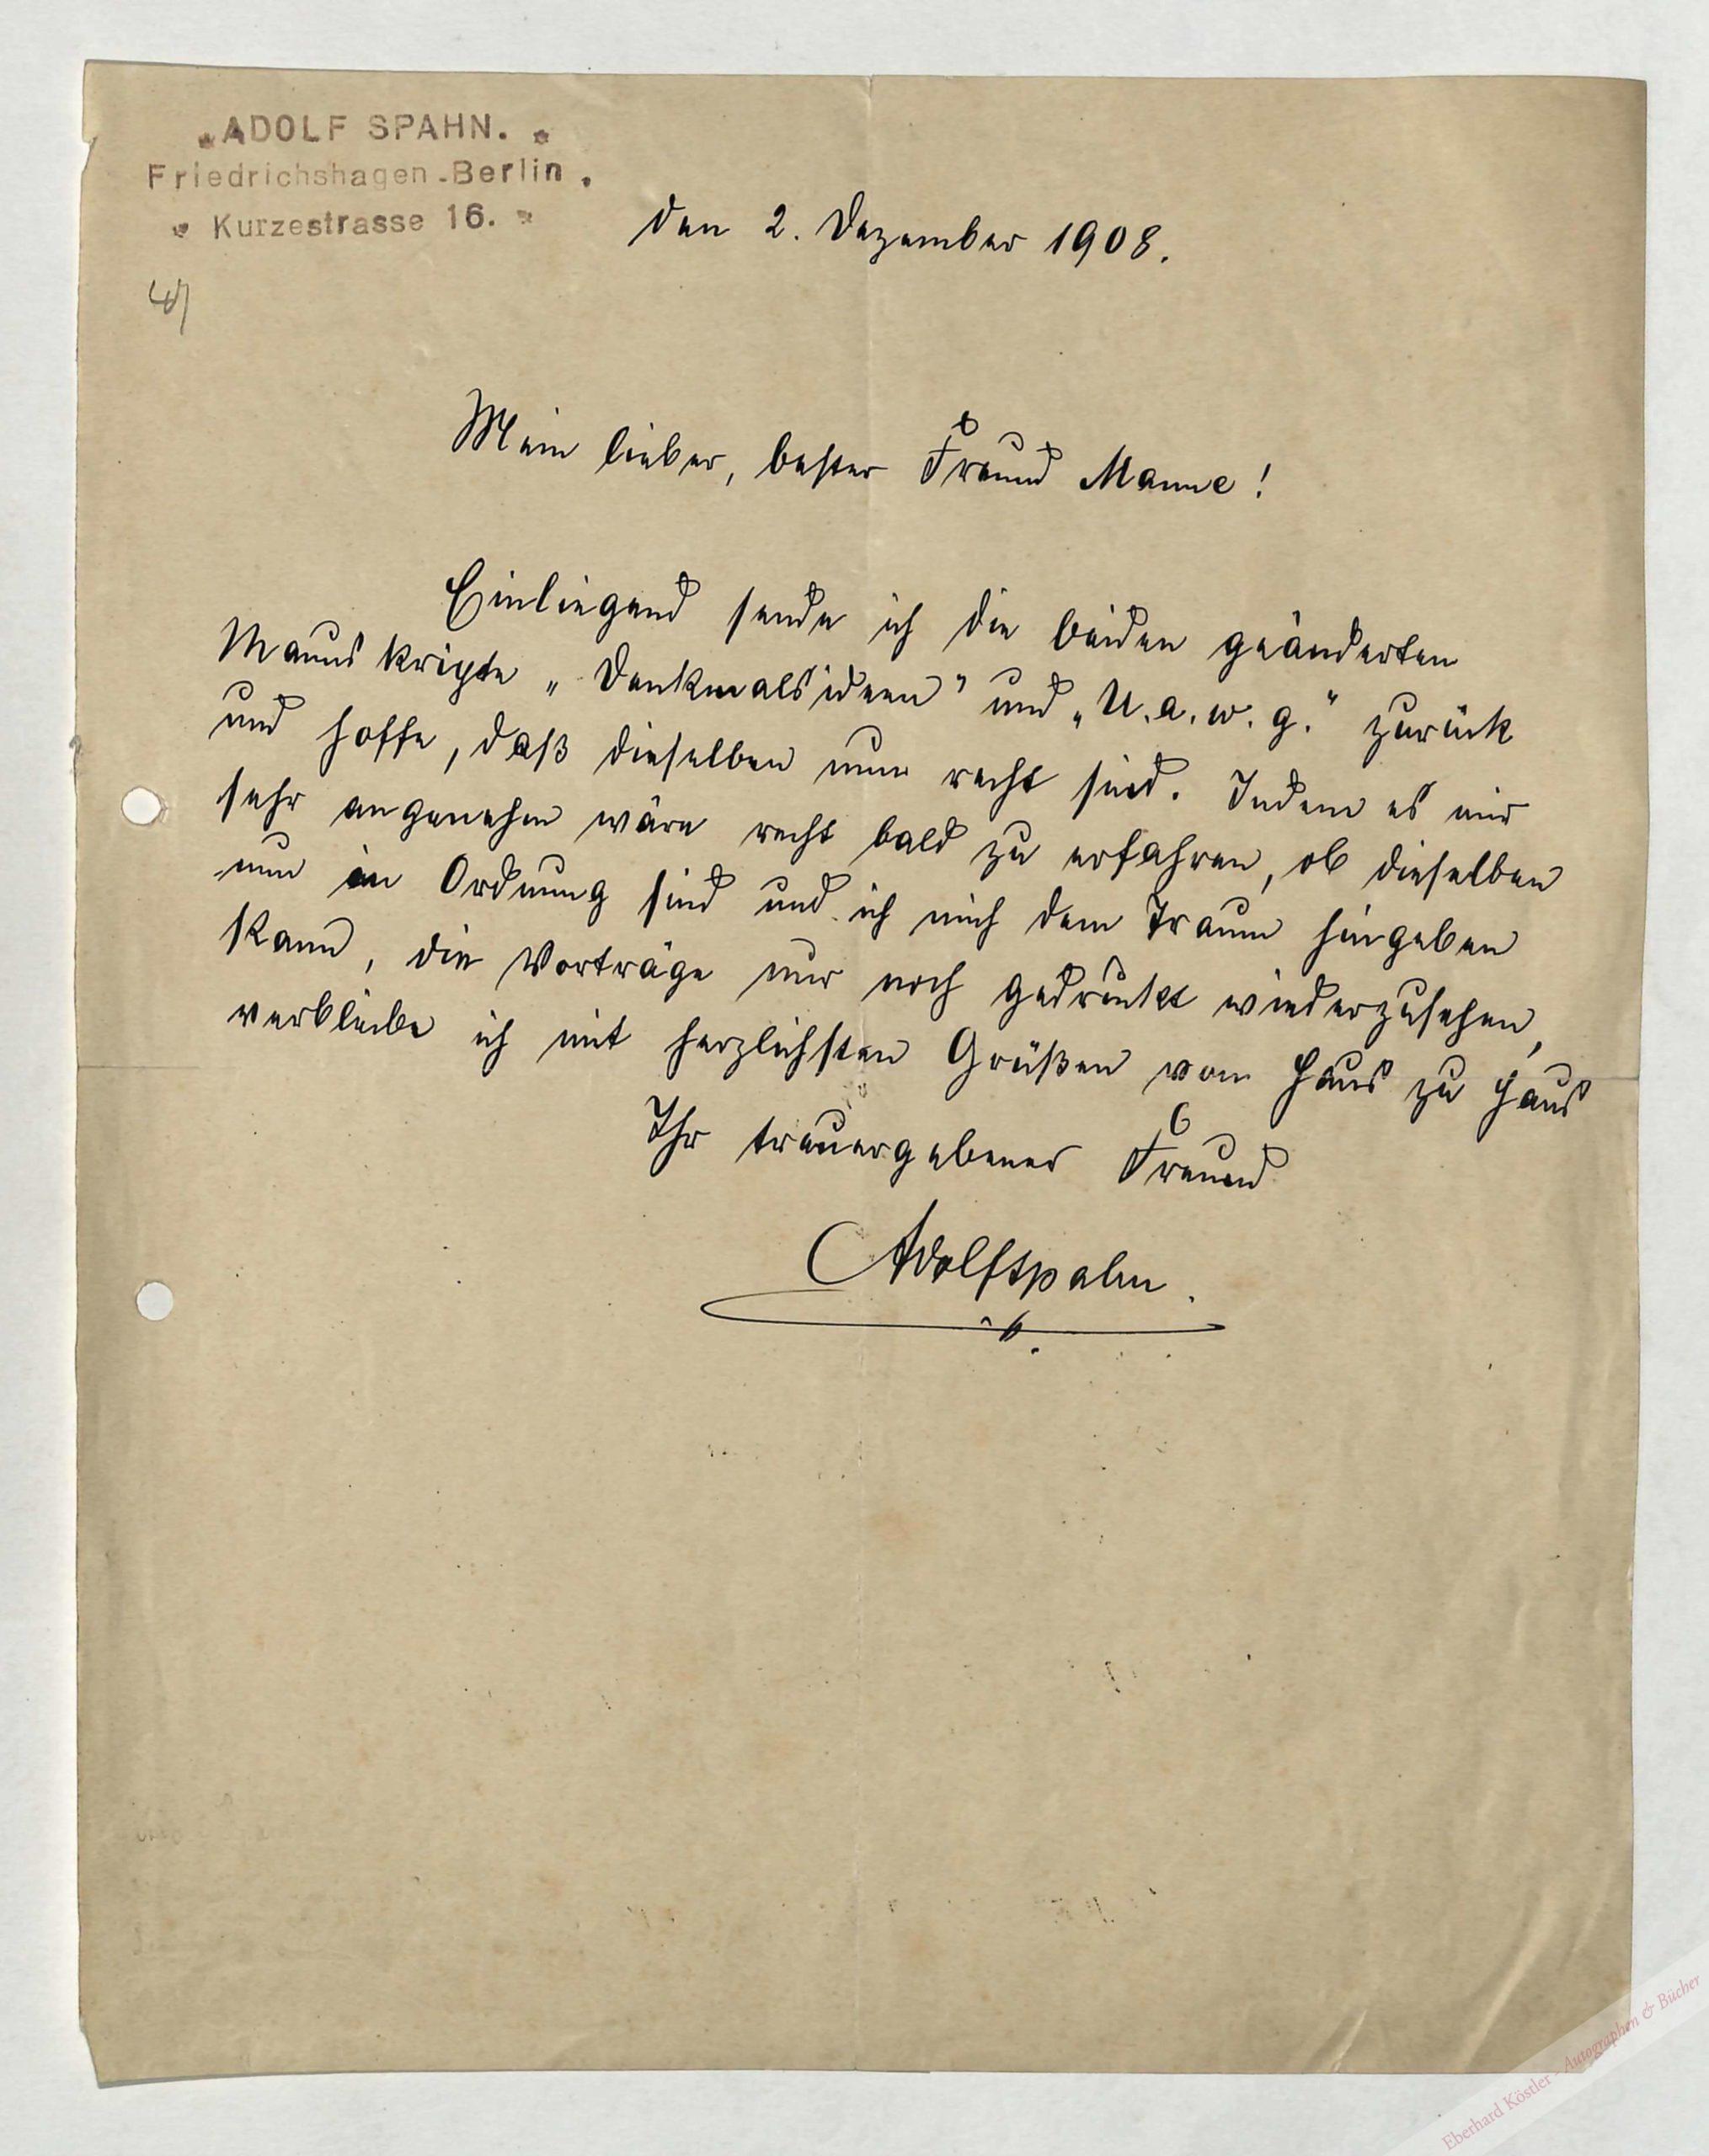 ADOLF SPAHN.
Friedrichshagen-Berlin.
Kurzestrasse 16.
den 2. Dezember 1908.
Mein lieber, bester Freund Manne!
Einliegend sende ich die beiden geänderten
Manuskripte „Denkmalsideen" und „U. a. w. g." zurück
und hoffe, daß dieselben nun recht sind. Indem es mir
sehr angenehm wäre recht bald zu erfahren, ob dieselben
nun in Ordnung sind und ich mich dem Traum hingeben
kann, die Vorträge nur noch gedruckt wiederzusehen,
verbleibe ich mit herzlichsten Grüßen von Haus zu Haus
Ihr treuergebener Freund
Adolf Spahn.
Eberhard Köstler - Autographen & Bücher